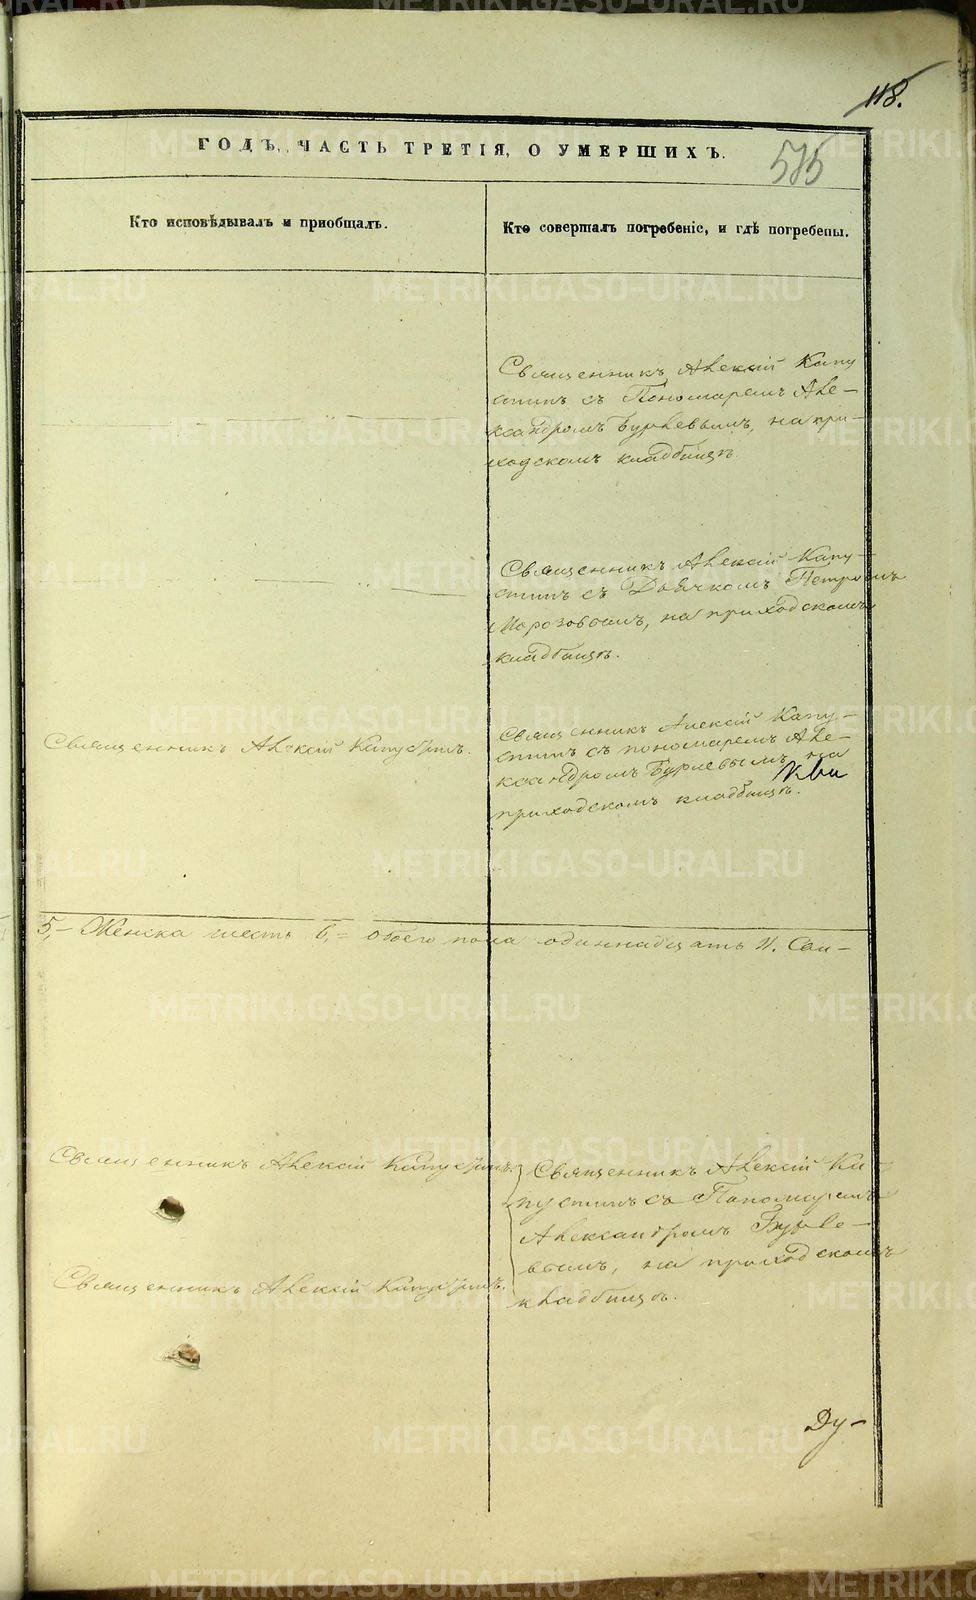 118.
ГОДЪ, ЧАСТЬ ТРЕТІЯ, О УМЕРШИХЪ.
515
Кто исповѣдывалъ и пріобщалъ.
Кто совершалъ погребеніе, и гдѣ погребены.
Священникъ Алексій Капу
стинъ съ Пономаремъ Але-
ксандромъ Бурлевымъ, на при-
ходскомъ кладбищѣ.
Священникъ Алексій Капу-
стинъ съ Дьячкомъ Петромъ
Морозовымъ, на приходскомъ
кладбищѣ.
Священникъ Алексій Капустинъ.
Священникъ Алексій Капу-
стинъ съ пономаремъ Але-
ксандромъ Бурлевымъ, на
приходскомъ кладбищѣ.
5,- Женска шесть 6,= обоего пола одиннадцать 11. Сви-
Священникъ Алексій Капустинъ.
Священникъ Алексій Капустинъ.
Священникъ Алексій Ка-
пустинъ съ Пономаремъ
Александромъ Бурле-
вымъ, на приходскомъ
кладбищѣ.
Ду-
METRIKI.GASO-URAL.RU